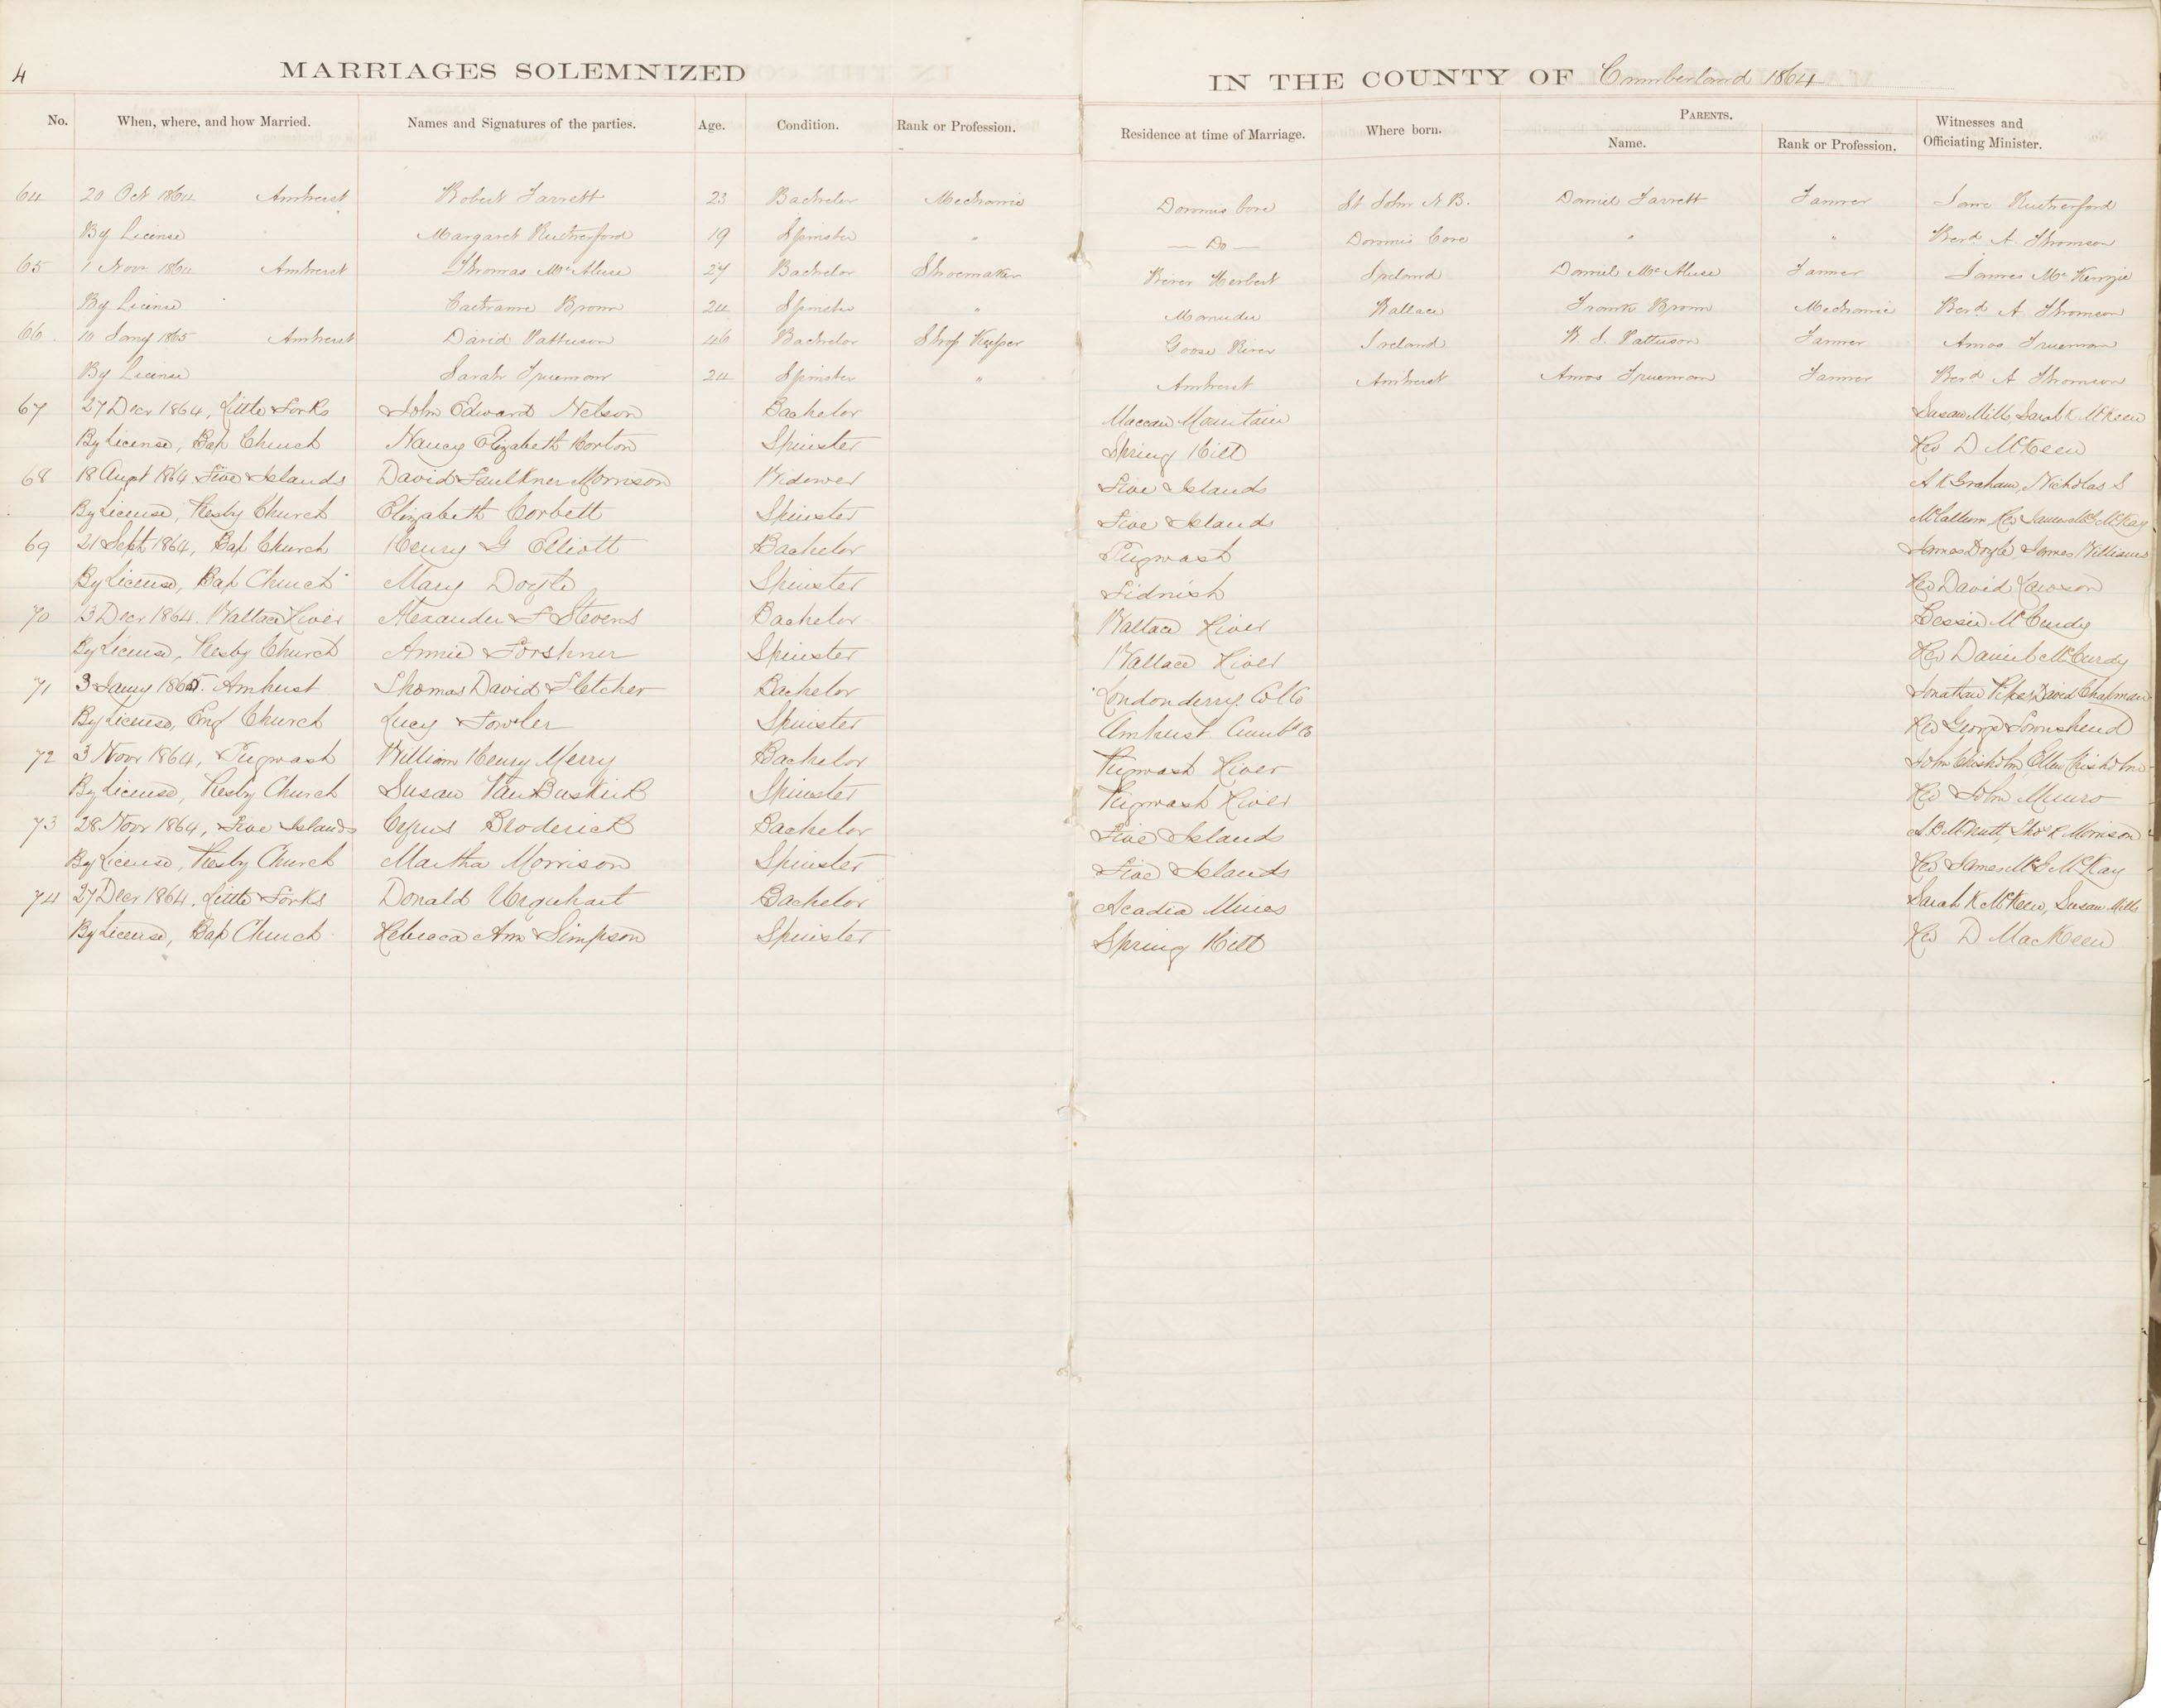 4 MARRIAGES SOLEMNIZED IN THE COUNTY OF Cumberland 1864
No. When, where, and how Married. Names and Signatures of the parties. Age. Condition. Rank or Profession. Residence at time of Marriage. Where born. PARENTS. Name. Rank or Profession. Witnesses and Officiating Minister.
64 20 Oct 1864 Amherst Robert Jarrett 23 Bachelor Mechanic St John N B. Daniel Jarrett Farmer Jane Rutherford
By License Margaret Rutherford 19 Spinster " — Do — " " Revd A Thomson
65 1 Novr 1864 Amherst Thomas 27 Bachelor Shoemaker River Herbert Ireland Daniel Farmer James McKenzie
By License Brown 24 Spinster " Wallace Frank Brown Mechanic Revd A Thomson
66 10 Jany 1865 Amherst David Patterson 46 Bachelor Shop Keeper Goose River Ireland Patterson Farmer Amos Trueman
By License Sarah Trueman 24 Spinster " Amherst Amherst Amos Trueman Farmer Revd A Thomson
67 27 Decr 1864, Little Forks John Edward Nelson Bachelor Maccan Mountain Susan Mills, Sarah K. McKeen
By License, Bap Church Nancy Elizabeth Horton Spinster Spring Hill Rev D McKeen
68 18 Augt 1864 Five Islands David Faulkner Morrison Widower Five Islands A K Graham, Nicholas S
By License, Presby Church Elizabeth Corbett Spinster Five Islands McCallum Rev James McG McKay
69 21 Sept 1864, Bap Church Henry G Elliott Bachelor Pugwash James Doyle James Williams
By License, Bap Church Mary Doyle Spinster Tidnish Rev David Lawson
70 13 Decr 1864. Wallace River Alexander F Stevens Bachelor Wallace River Bessie McCurdy
By License, Presby Church Annie Forshner Spinster Wallace River Rev Daniel McCurdy
71 3 Jany 1865. Amherst Thomas David Fletcher Bachelor Londonderry Col Co Jonathan Pipes, David Chapman
By License, Eng Church Lucy Fowler Spinster Amherst Cumbd Co Rev George Townshend
72 3 Novr 1864, Pugwash William Henry Merry Bachelor Pugwash River John Chisholm, Ellen Chisholm
By License, Presby Church Susan VanBuskirk Spinster Pugwash River Rev John Munro
73 28 Novr 1864, Five Islands Cyrus Broderick Bachelor Five Islands McNutt, Thos R Morrison
By License, Presby Church Martha Morrison Spinster Five Islands Rev James McG McKay
74 27 Decr 1864. Little Forks Donald Urquhart Bachelor Acadia Mines Sarah K McKeen, Susan Mills
By License, Bap Church Rebecca Ann Simpson Spinster Spring Hill Rev D MacKeen